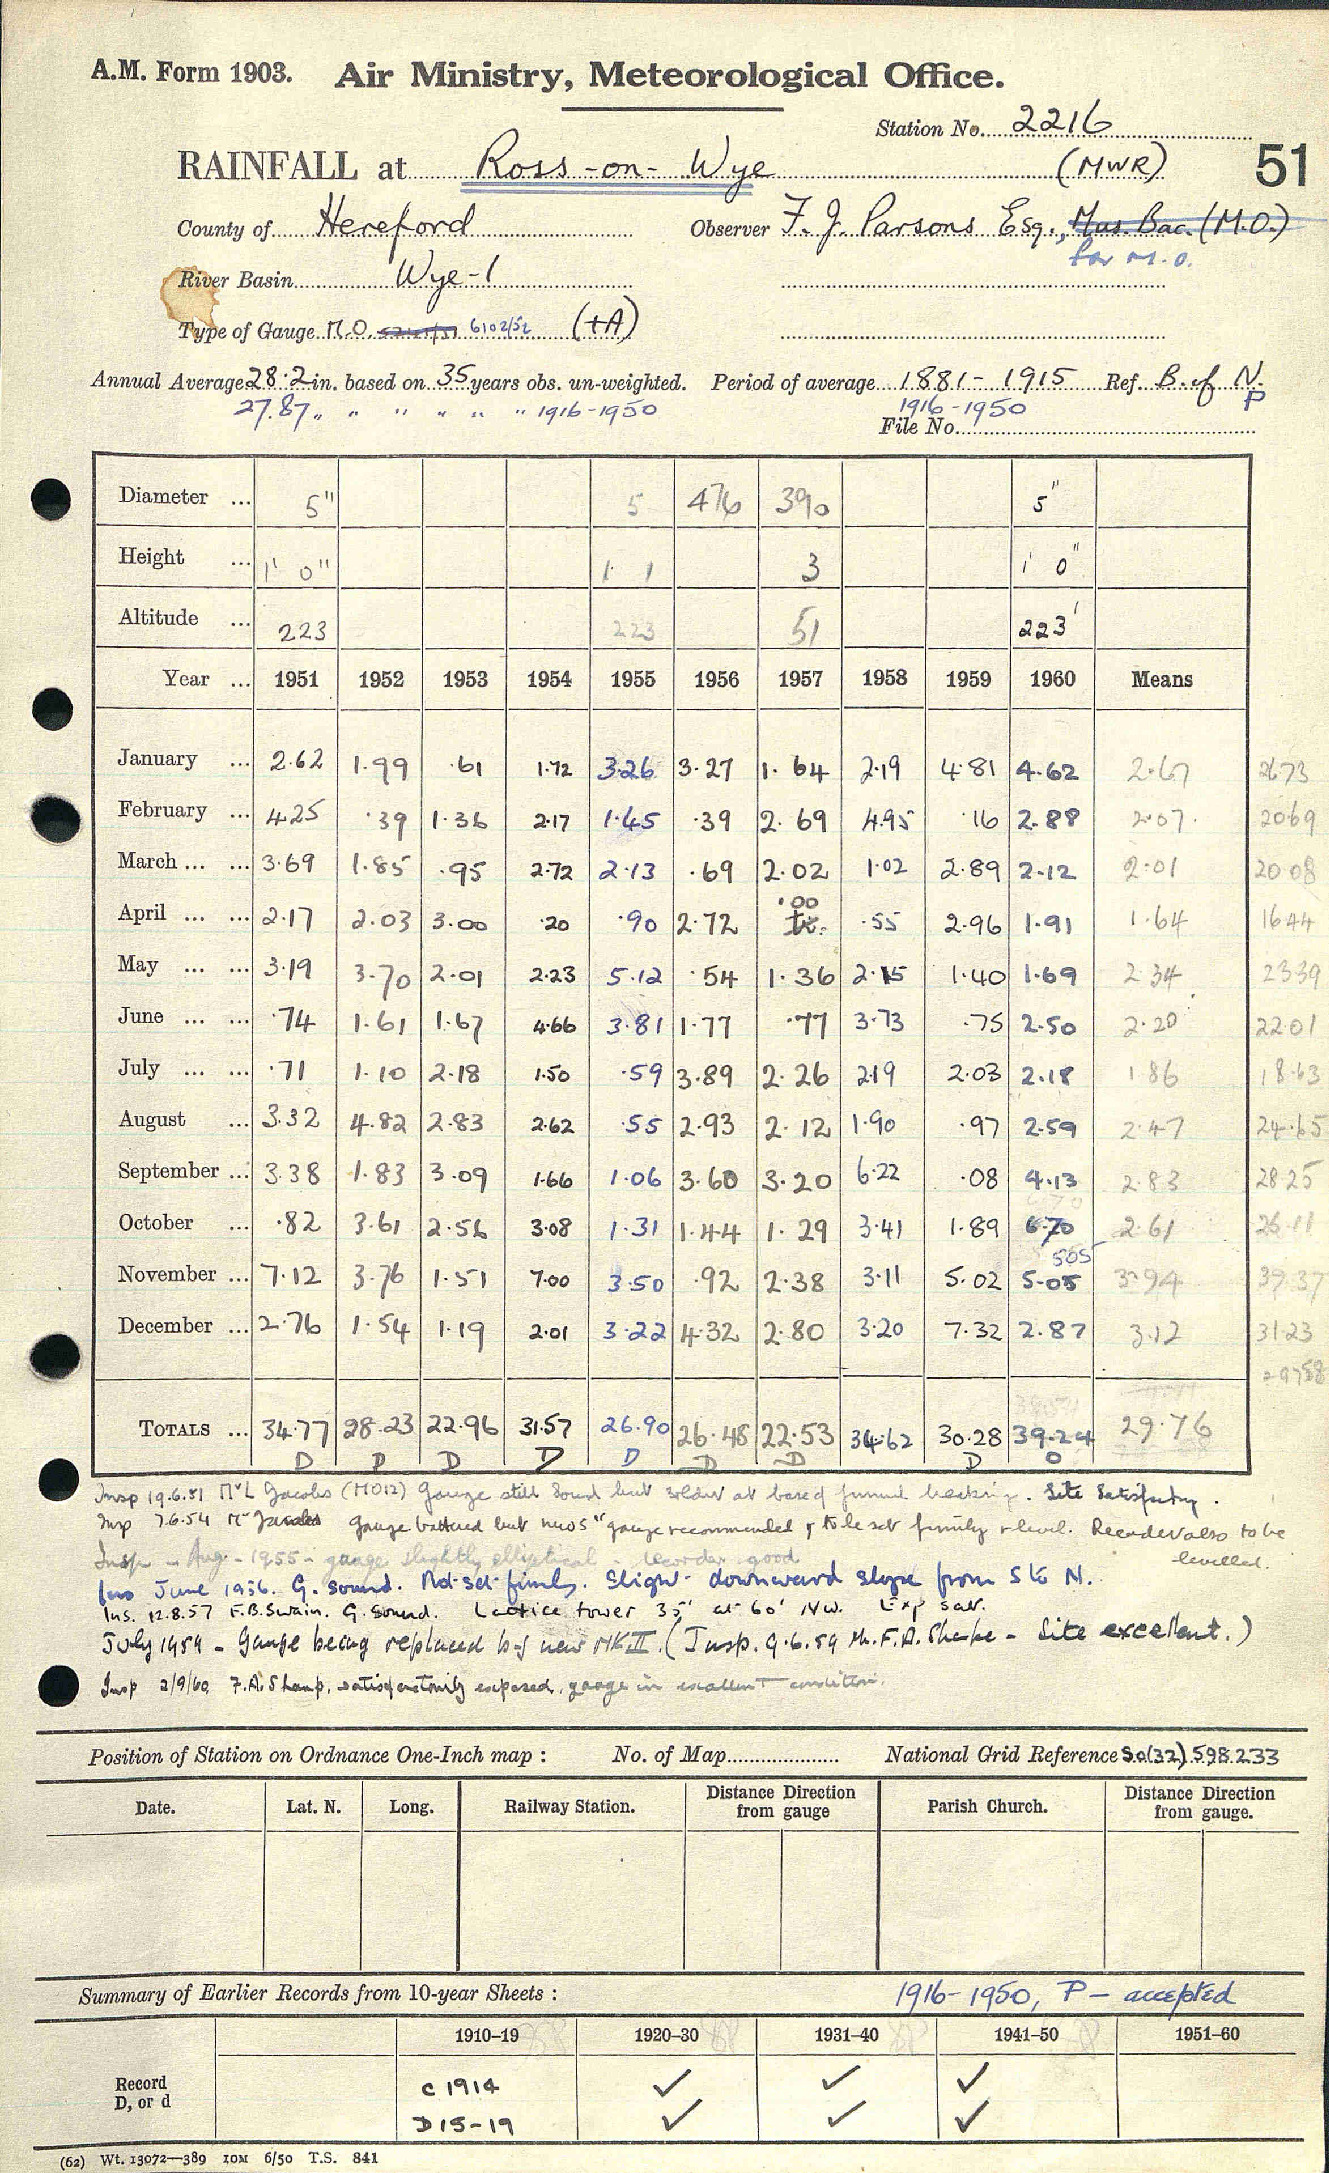 A.M. Form 1903. Air Ministry, Meteorological Office.
Station No. 2216
RAINFALL at Ross-on-Wye (MWR) 51
County of Hereford Observer F. J. Parsons Esq., Mus. Bac. (M.O.)
for M.O.
River Basin Wye-1
Type of Gauge M.O. 6102/52 (+A)
Annual Average 28.2 in. based on 35 years obs. un-weighted. Period of average 1881-1915 Ref. B. of N.
27.87 " " " " " " 1916-1950 1916-1950 P
File No.
Diameter ... 5" 5 476 390 5"
Height ... 1' 0" 1 1 3 1' 0"
Altitude ... 223 223 51 223'
Year ... 1951 1952 1953 1954 1955 1956 1957 1958 1959 1960 Means
January ... 2.62 1.99 .61 1.72 3.26 3.27 1.64 2.19 4.81 4.62 2.67 2673
February ... 4.25 .39 1.36 2.17 1.45 .39 2.69 4.95 .16 2.88 2.07 2069
March ... ... 3.69 1.85 .95 2.72 2.13 .69 2.02 1.02 2.89 2.12 2.01 20.08
.00
April ... ... 2.17 2.03 3.00 .20 .90 2.72 tr. .55 2.96 1.91 1.64 1644
May ... ... 3.19 3.70 2.01 2.23 5.12 .54 1.36 2.15 1.40 1.69 2.34 2339
June ... ... .74 1.61 1.67 4.66 3.81 1.77 .77 3.73 .75 2.50 2.20 2201
July ... ... .71 1.10 2.18 1.50 .59 3.89 2.26 2.19 2.03 2.18 1.86 18.63
August ... 3.32 4.82 2.83 2.62 .55 2.93 2.12 1.90 .97 2.59 2.47 24.65
September ... 3.38 1.83 3.09 1.66 1.06 3.60 3.20 6.22 .08 4.13 2.83 2825
October ... .82 3.61 2.56 3.08 1.31 1.44 1.29 3.41 1.89 6.70 2.61 26.11
505
November ... 7.12 3.76 1.51 7.00 3.50 .92 2.38 3.11 5.02 5.05 3.94 39.37
December ... 2.76 1.54 1.19 2.01 3.22 4.32 2.80 3.20 7.32 2.87 3.12 31.23
29758
TOTALS ... 34.77 28.23 22.96 31.57 26.90 26.48 22.53 34.62 30.28 39.24 29.76
D D D D D D D D D
Insp 19.6.51 Mr L Jacobs (MO12) Gauge still sound but solder at base of funnel breaking. Site Satisfactory.
Insp 7.6.54 Mr Jacobs Gauge battered but new 5" gauge recommended & to be set firmly & level. Recorder also to be levelled.
Insp - Aug - 1955 - gauge slightly elliptical - recorder good
Ins June 1956. G. sound. Not set firmly. Slight downward slope from S to N.
Ins. 12.8.57 F.B. Swain. G. Sound. Lattice tower 35' at 60' NW. Exp sat.
July 1959 - Gauge being replaced by new MK II. (Insp. 9.6.59 Mr. F.A. Sharpe - Site excellent.)
Insp 2/9/60, F.A. Sharp, satisfactorily exposed, gauge in excellent condition.
Position of Station on Ordnance One-Inch map : No. of Map National Grid Reference SO(32) 598.233
Date. Lat. N. Long. Railway Station. Distance Direction from gauge Parish Church. Distance Direction from gauge.
Summary of Earlier Records from 10-year Sheets : 1916-1950, P - accepted
1910–19 1920–30 1931–40 1941–50 1951–60
Record C 1914 ✓ ✓ ✓
D, or d D 15-19 ✓ ✓ ✓
(62) Wt. 13072—389 10M 6/50 T.S. 841